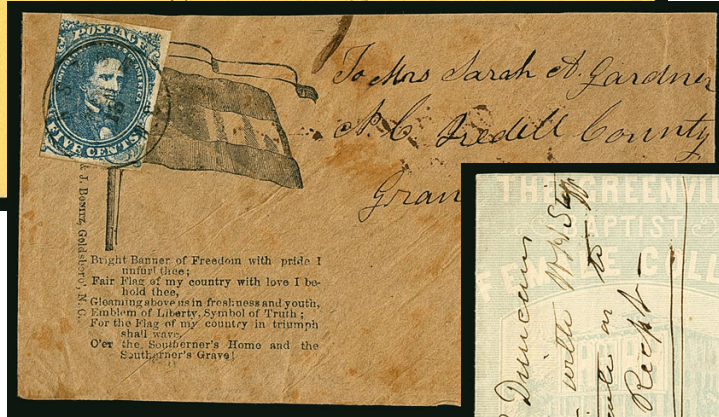 POSTAGE
FIVE CENTS
To Mrs Sarah A. Gardner
N. C. Iredell County
Gran
J. Bonitz, Goldsboro, N.C.
Bright Banner of Freedom with pride I
unfurl thee;
Fair Flag of my country with love I be-
hold thee,
Gleaming above us in freshness and youth,
Emblem of Liberty, Symbol of Truth;
For the Flag of my country in triumph
shall wave
O'er the Southerner's Home and the
Southerner's Grave!
THE GREENVI
BAPTIST
FEMALE COLL
Duncans
with
to
Recpt